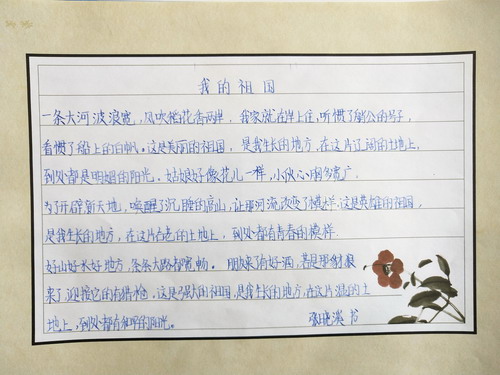 我的祖国
一条大河波浪宽，风吹稻花香两岸，我家就在岸上住，听惯了艄公的号子，
看惯了船上的白帆。这是美丽的祖国，是我生长的地方，在这片辽阔的土地上，
到处都是明媚的阳光。姑娘好像花儿一样，小伙心胸多宽广，
为了开辟新天地，唤醒了沉睡的高山，让那河流改变了模样。这是英雄的祖国，
是我生长的地方，在这片古老的土地上，到处都有青春的模样。
好山好水好地方，条条大路都宽畅。朋友来了有好酒，若是那豺狼
来了，迎接它的有猎枪，这是强大的祖国，是我生长的地方，在这片温的土
地上，到处都有和的阳光。
书